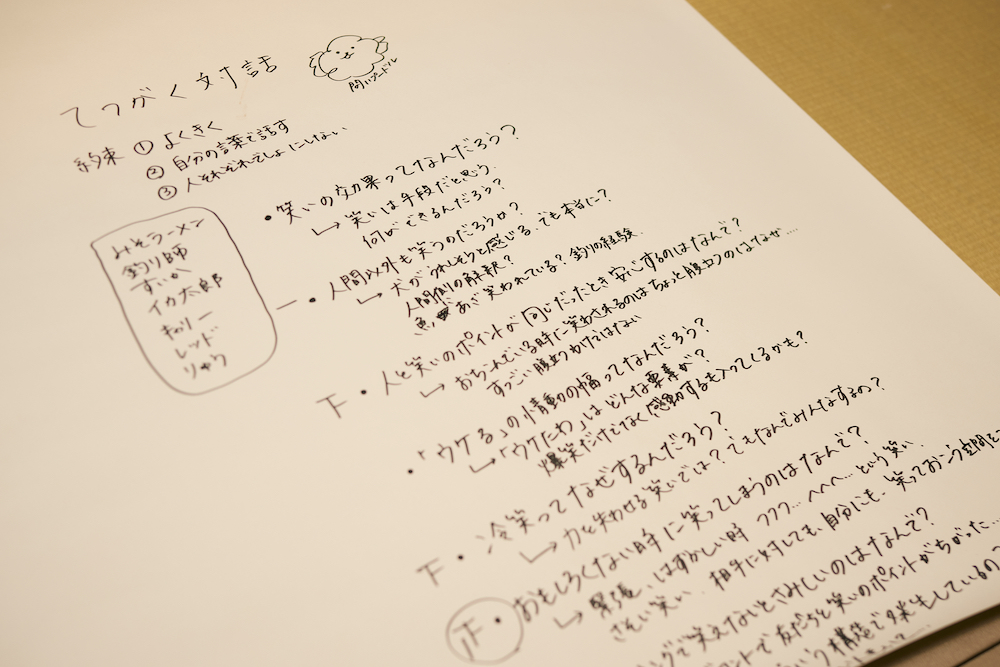 てつがく対話
問いプードル
約束 ① よくきく
② 自分の言葉で話す
③ 人それぞれでしょにしない
みそラーメン
釣り師
すいか
イカ太郎
キャリー
レッド
りゅう
• 笑いの効果ってなんだろう?
↳ 笑いは手段だと思う.
何ができるんだろう?
一 • 人間以外も笑うのだろうか?
↳ 犬がうれしそうと感じる. でも本当に?
人間側の解釈?
魚 あざ笑われている? 釣りの経験.
下 • 人と笑いのポイントが同じだったとき安心するのはなんで?
↳ おちこんでいる時に笑わされるのはちょっと腹立つのはなぜ....
すっごい腹立つわけではない
• 「ウケる」の情動の幅ってなんだろう?
↳ 「ウケたわ」はどんな要素が?
爆笑だけでなく感動するも入ってくるかも?
下 • 冷笑ってなぜするんだろう?
↳ 力を失わせる笑いでは? でもなんでみんなするの?
正 • おもしろくない時に笑ってしまうのはなんで?
↳ 緊張、はずかしい時 フフフ... へへへ... という笑い.
さそい笑い. 相手に対しても、自分にも. 笑っておこう空間
グで笑えないとさみしいのはなんで?
ントで友だちと笑いのポイントがちがった...
いう構造で発生しているの